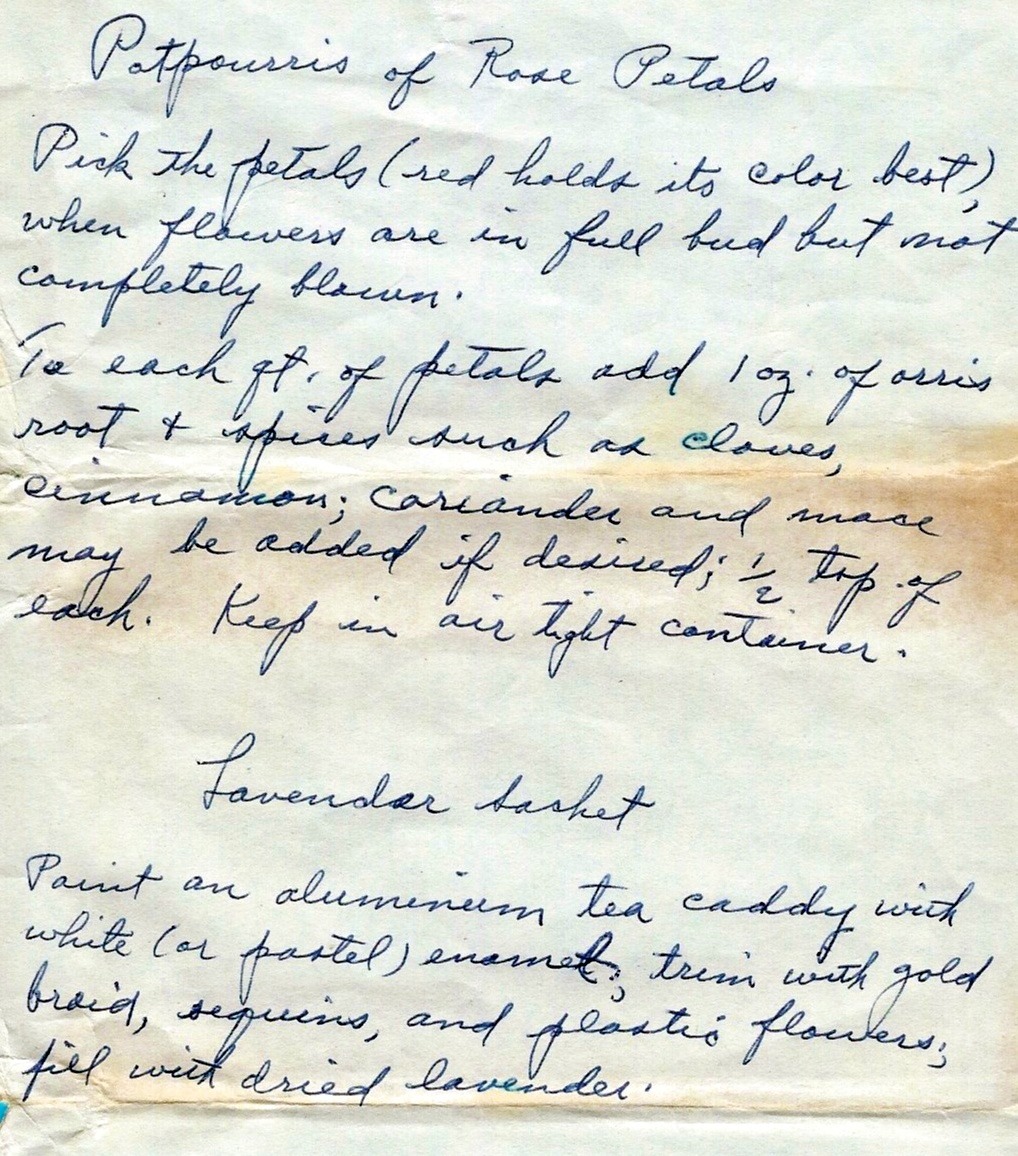 Potpourris of Rose Petals
Pick the petals (red holds its color best),
when flowers are in full bud but not
completely blown.
To each qt. of petals add 1 oz. of orris
root + spices such as cloves,
cinnamon; coriander and mace
may be added if desired; 1/2 tsp. of
each. Keep in air tight container.
Lavendar Sachet
Paint an aluminum tea caddy with
white (or pastel) enamel; trim with gold
braid, sequins, and plastic flowers;
fill with dried lavender.